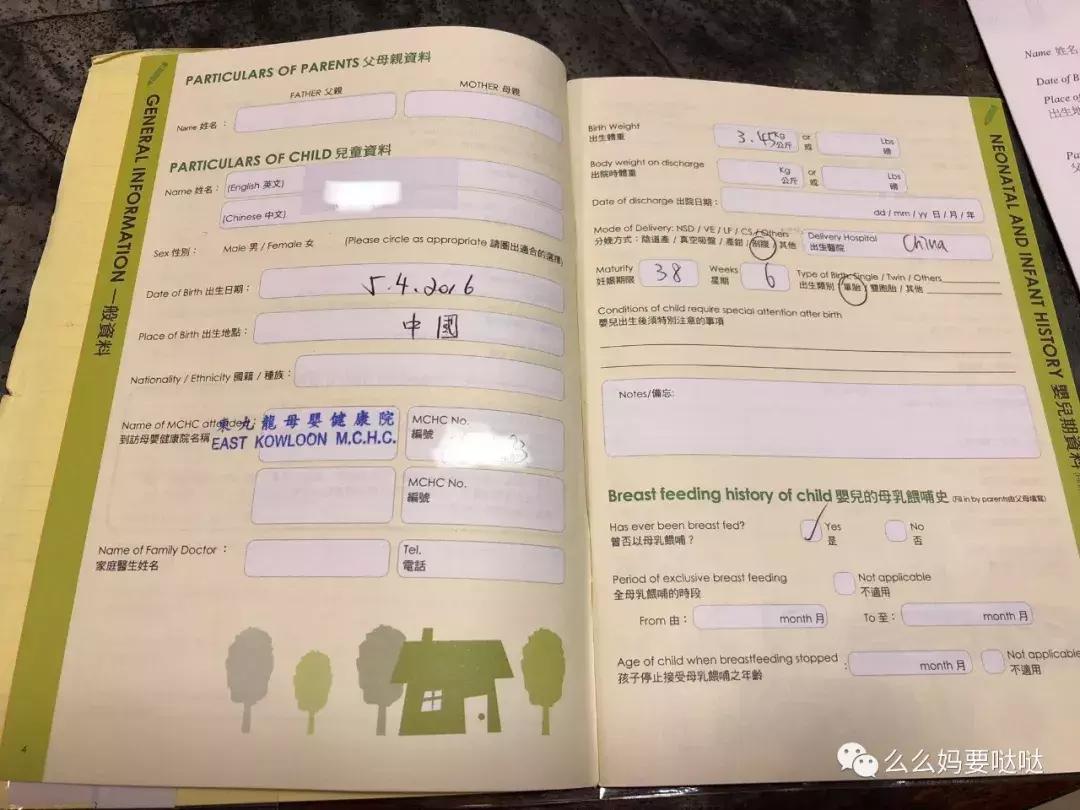 GENERAL INFORMATION 一般資料
PARTICULARS OF PARENTS 父母親資料
FATHER 父親
MOTHER 母親
Name 姓名：
PARTICULARS OF CHILD 兒童資料
Name 姓名：
(English 英文)
(Chinese 中文)
Sex 性別：
Male 男 / Female 女
(Please circle as appropriate 請圈出適合的選擇)
Date of Birth 出生日期：
5.4.2016
Place of Birth 出生地點：
中國
Nationality / Ethnicity 國籍 / 種族：
Name of MCHC attended：
到訪母嬰健康院名稱
東九龍母嬰健康院
EAST KOWLOON M.C.H.C.
MCHC No.
編號
3
MCHC No.
編號
Name of Family Doctor：
家庭醫生姓名
Tel.
電話
4
NEONATAL AND INFANT HISTORY 嬰兒期資料
Birth Weight
出生體重
3.45 Kg
公斤
or
或
Lbs
磅
Body weight on discharge
出院時體重
Kg
公斤
or
或
Lbs
磅
Date of discharge 出院日期：
dd / mm / yy 日 / 月 / 年
Mode of Delivery: NSD / VE / LF / CS / Others
分娩方式：陰道產 / 真空吸盤 / 產鉗 / 剖腹 / 其他
Delivery Hospital
出生醫院
China
Maturity
妊娠期限
38
Weeks
星期
6
Type of Birth: Single / Twin / Others
出生類別：單胎 / 雙胞胎 / 其他
Conditions of child require special attention after birth
嬰兒出生後須特別注意的事項
Notes/備忘:
Breast feeding history of child 嬰兒的母乳餵哺史 (Fill in by parents由父母填寫)
Has ever been breast fed?
曾否以母乳餵哺？
Yes
是
No
否
Period of exclusive breast feeding
全母乳餵哺的時段
Not applicable
不適用
From 由：
month 月
To 至：
month 月
Age of child when breastfeeding stopped：
孩子停止接受母乳餵哺之年齡
month 月
Not applicable
不適用
Name 姓名
Date of B
Place of
出生地
么么妈要哒哒